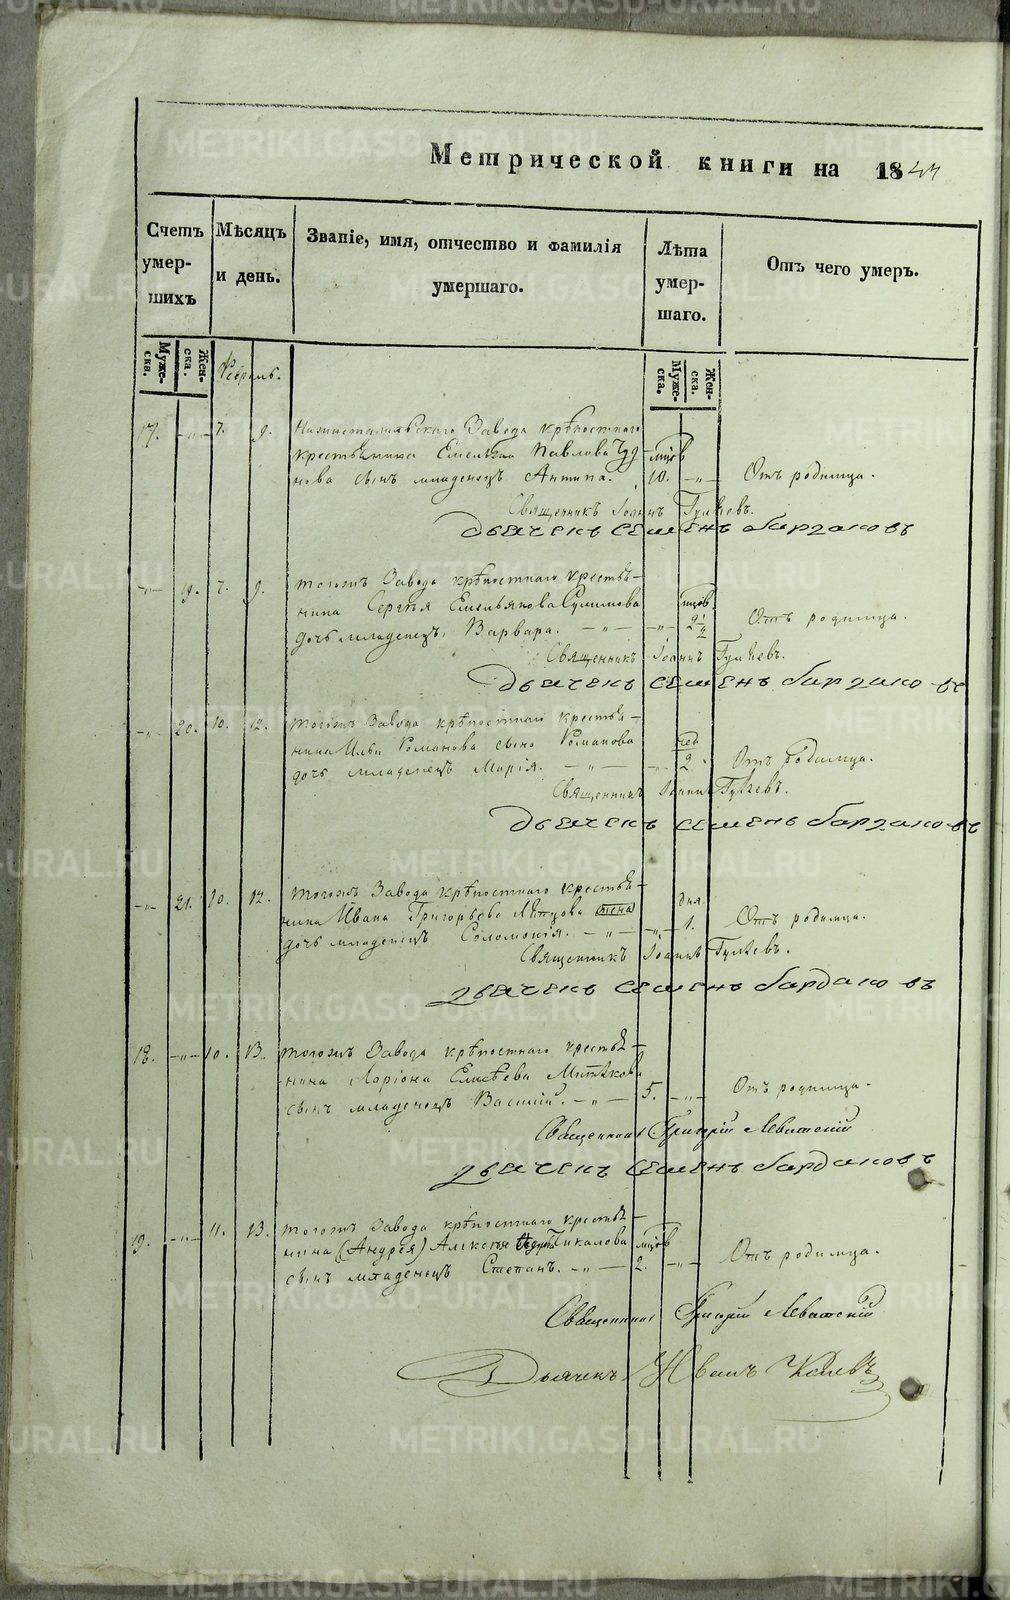 METRIKI.GASO-URAL.RU
Метрической книги на 1844
Счетъ умер-
шихъ
Мѣсяцъ
и день.
Званіе, имя, отчество и фамилія
умершаго.
Лѣта
умер-
шаго.
Отъ чего умеръ.
Муже-
ска.
Жен-
ска.
Февраль.
Муже-
ска.
Жен-
ска.
17. -„- 7. 9. Завода крѣпостнаго
крестьянина Павлова
нова сынъ младенецъ Антипа. 10. -„- Отъ родимца.
Священникъ Іоаннъ
Дьячекъ Семенъ Бардаковъ
-„- 19. 7. 9. тогожъ Завода крѣпостнаго крестья-
нина Сергѣя Емельянова
дочь младенецъ Варвара. -„- -„- 2 1/2 Отъ родимца.
Священникъ Іоаннъ
Дьячекъ Семенъ Бардаковъ
-„- 20. 10. 12. тогожъ Завода крѣпостнаго крестья-
нина Ильи Романова Романова
дочь младенецъ Марія. -„- -„- 2. Отъ родимца.
Священникъ Іоаннъ
Дьячекъ Семенъ Бардаковъ
-„- 21. 10. 12. тогожъ Завода крѣпостнаго крестья-
нина Ивана Григорьева
дня
дочь младенецъ Соломонія. -„- -„- 1. Отъ родимца.
Священникъ Іоаннъ
Дьячекъ Семенъ Бардаковъ
18. -„- 10. 13. тогожъ Завода крѣпостнаго крестья-
нина Ларіона Елисѣева
сынъ младенецъ Василій. -„- 5. -„- Отъ родимца.
Священникъ Григорій Левитскій
Дьячекъ Семенъ Бардаковъ
19. -„- 11. 13. тогожъ Завода крѣпостнаго крестья-
нина (Андрея) Алексѣя Пикалова
сынъ младенецъ Степанъ. -„- 2. -„- Отъ родимца.
Священникъ Григорій Левитскій
Дьячекъ Иванъ